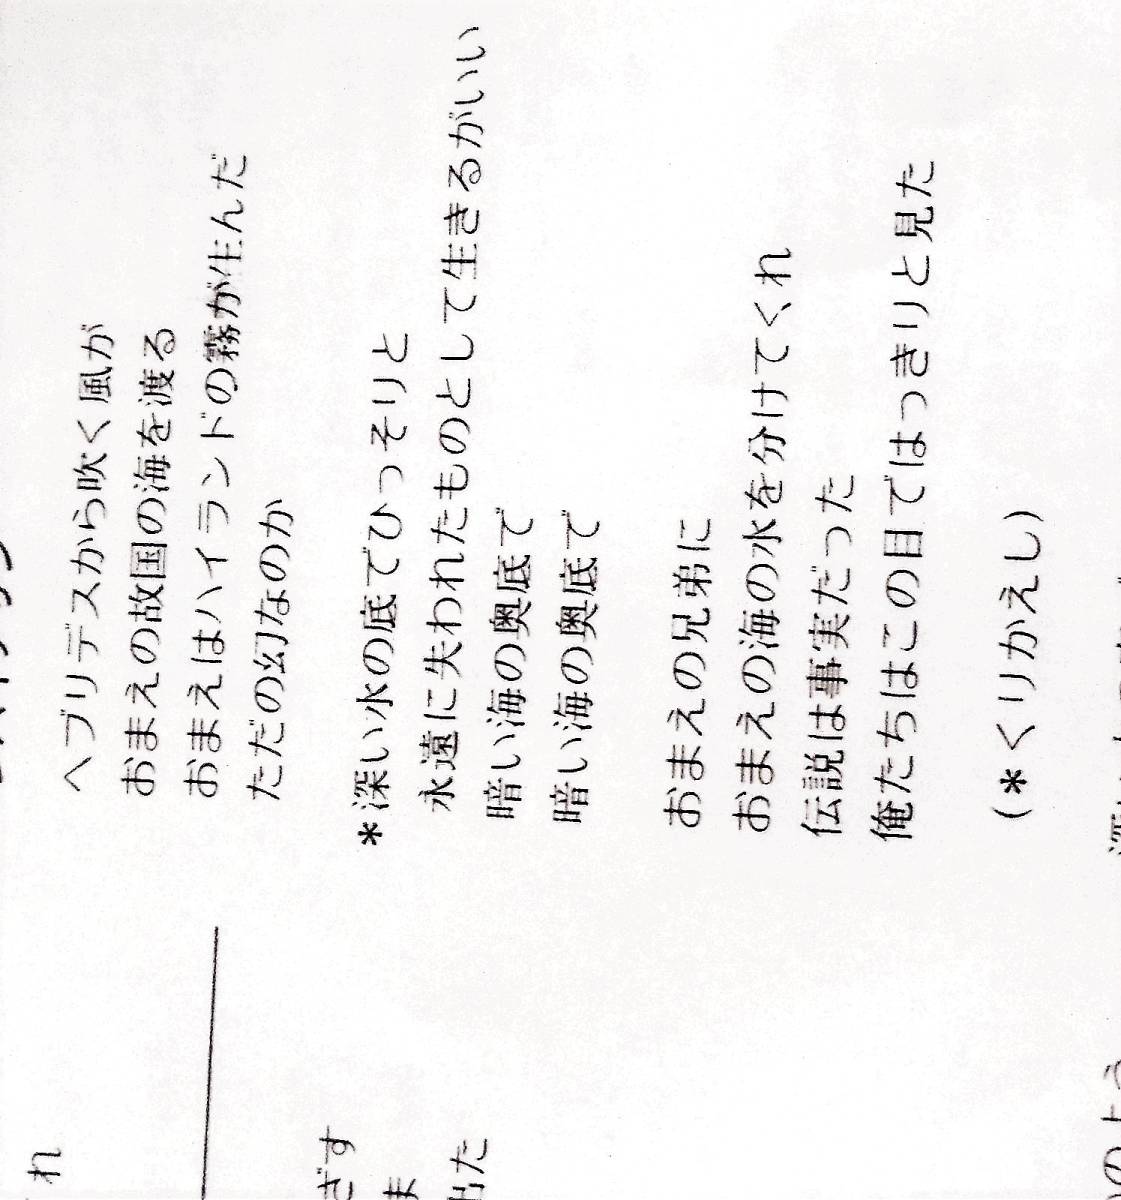 ヘブリデスから吹く風が
おまえの故国の海を渡る
おまえはハイランドの霧が生んだ
ただの幻なのか
*深い水の底でひっそりと
永遠に失われたものとして生きるがいい
暗い海の奥底で
暗い海の奥底で
おまえの兄弟に
おまえの海の水を分けてくれ
伝説は事実だった
俺たちはこの目ではっきりと見た
(*くりかえし)
れ
ぎす
ま
出た
のよう